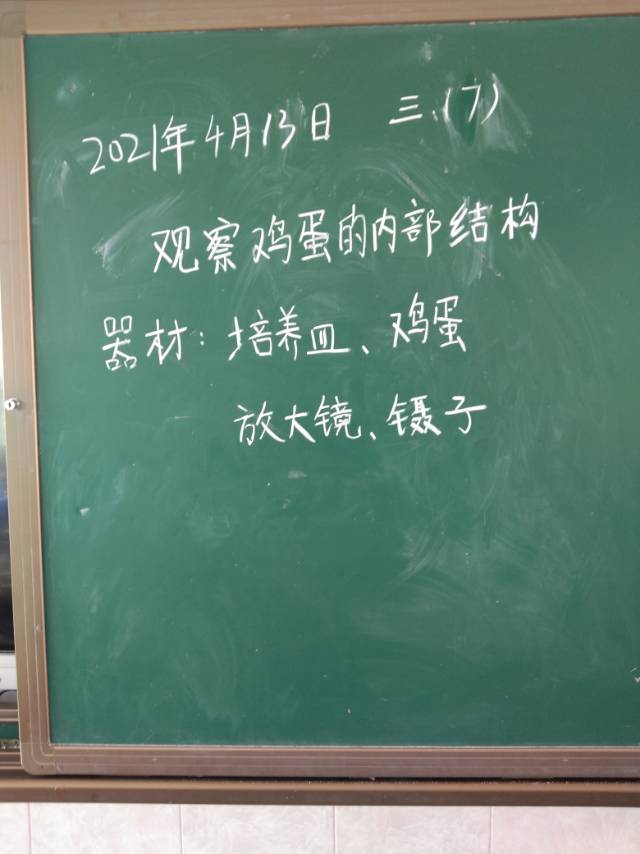 2021年4月13日 三.(7)
观察鸡蛋的内部结构
器材：培养皿、鸡蛋
放大镜、镊子